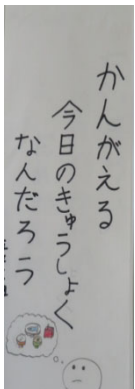 かんがえる
今日のきゅうしょく
なんだろう